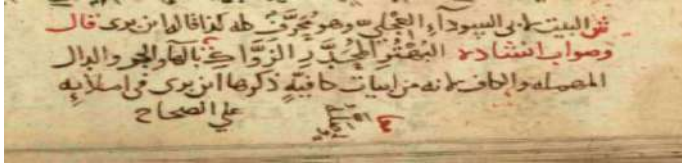 ش البيت لابى السوداء العجلى وهو مُحَرَّفٌ كله كذا قاله ابن برى قال
وصواب انشاده البُهْتُرِ المُجَدَّرِ الزَّوَّاكِ بالهاء والجيم والدال
المهمله والكاف لانه من ابيات كافيةٍ ذكرها ابن برى فى اماليه
علي الصحاح